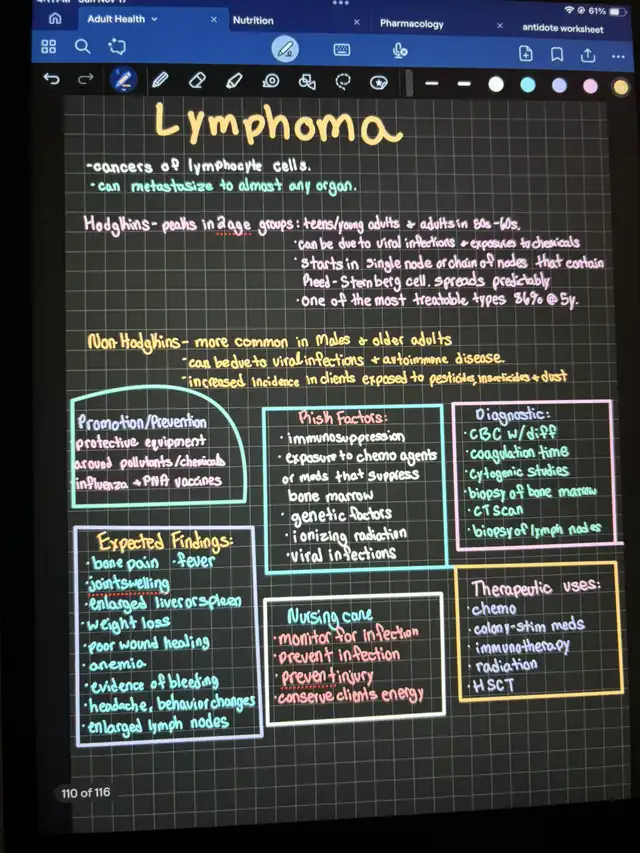 Sun Nov 17
61%
Adult Health
Nutrition
Pharmacology
antidote worksheet
Lymphoma
-cancers of lymphocyte cells.
·can metastasize to almost any organ.
Hodgkins- peaks in 2 age groups: teens/young adults + adults in 50s-60s.
·can be due to viral infections + exposures to chemicals
·starts in single node or chain of nodes that contain
Reed-Sternberg cell. spreads predictably
·one of the most treatable types 86% @ 5y.
Non Hodgkins- more common in Males + older adults
·can be due to viral infections + autoimmune disease.
·increased incidence in clients exposed to pesticides, insecticides + dust
Promotion/Prevention
protective equipment
around pollutants/chemicals
influenza + PNA vaccines
Risk Factors:
·immunosuppression
·exposure to chemo agents
or meds that suppress
bone marrow
·genetic factors
·ionizing radiation
·viral infections
Diagnostic:
·CBC w/diff
·coagulation time
·cytogenic studies
·biopsy of bone marrow
·CT scan
·biopsy of lymph nodes
Expected Findings:
·bone pain ·fever
·joint swelling
·enlarged liver or spleen
·weight loss
·poor wound healing
·anemia
·evidence of bleeding
·headache, behavior changes
·enlarged lymph nodes
Nursing care
·monitor for infection
·prevent infection
·prevent injury
·conserve clients energy
Therapeutic uses:
·chemo
·colony-stim meds
·immunotherapy
·radiation
·HSCT
110 of 116